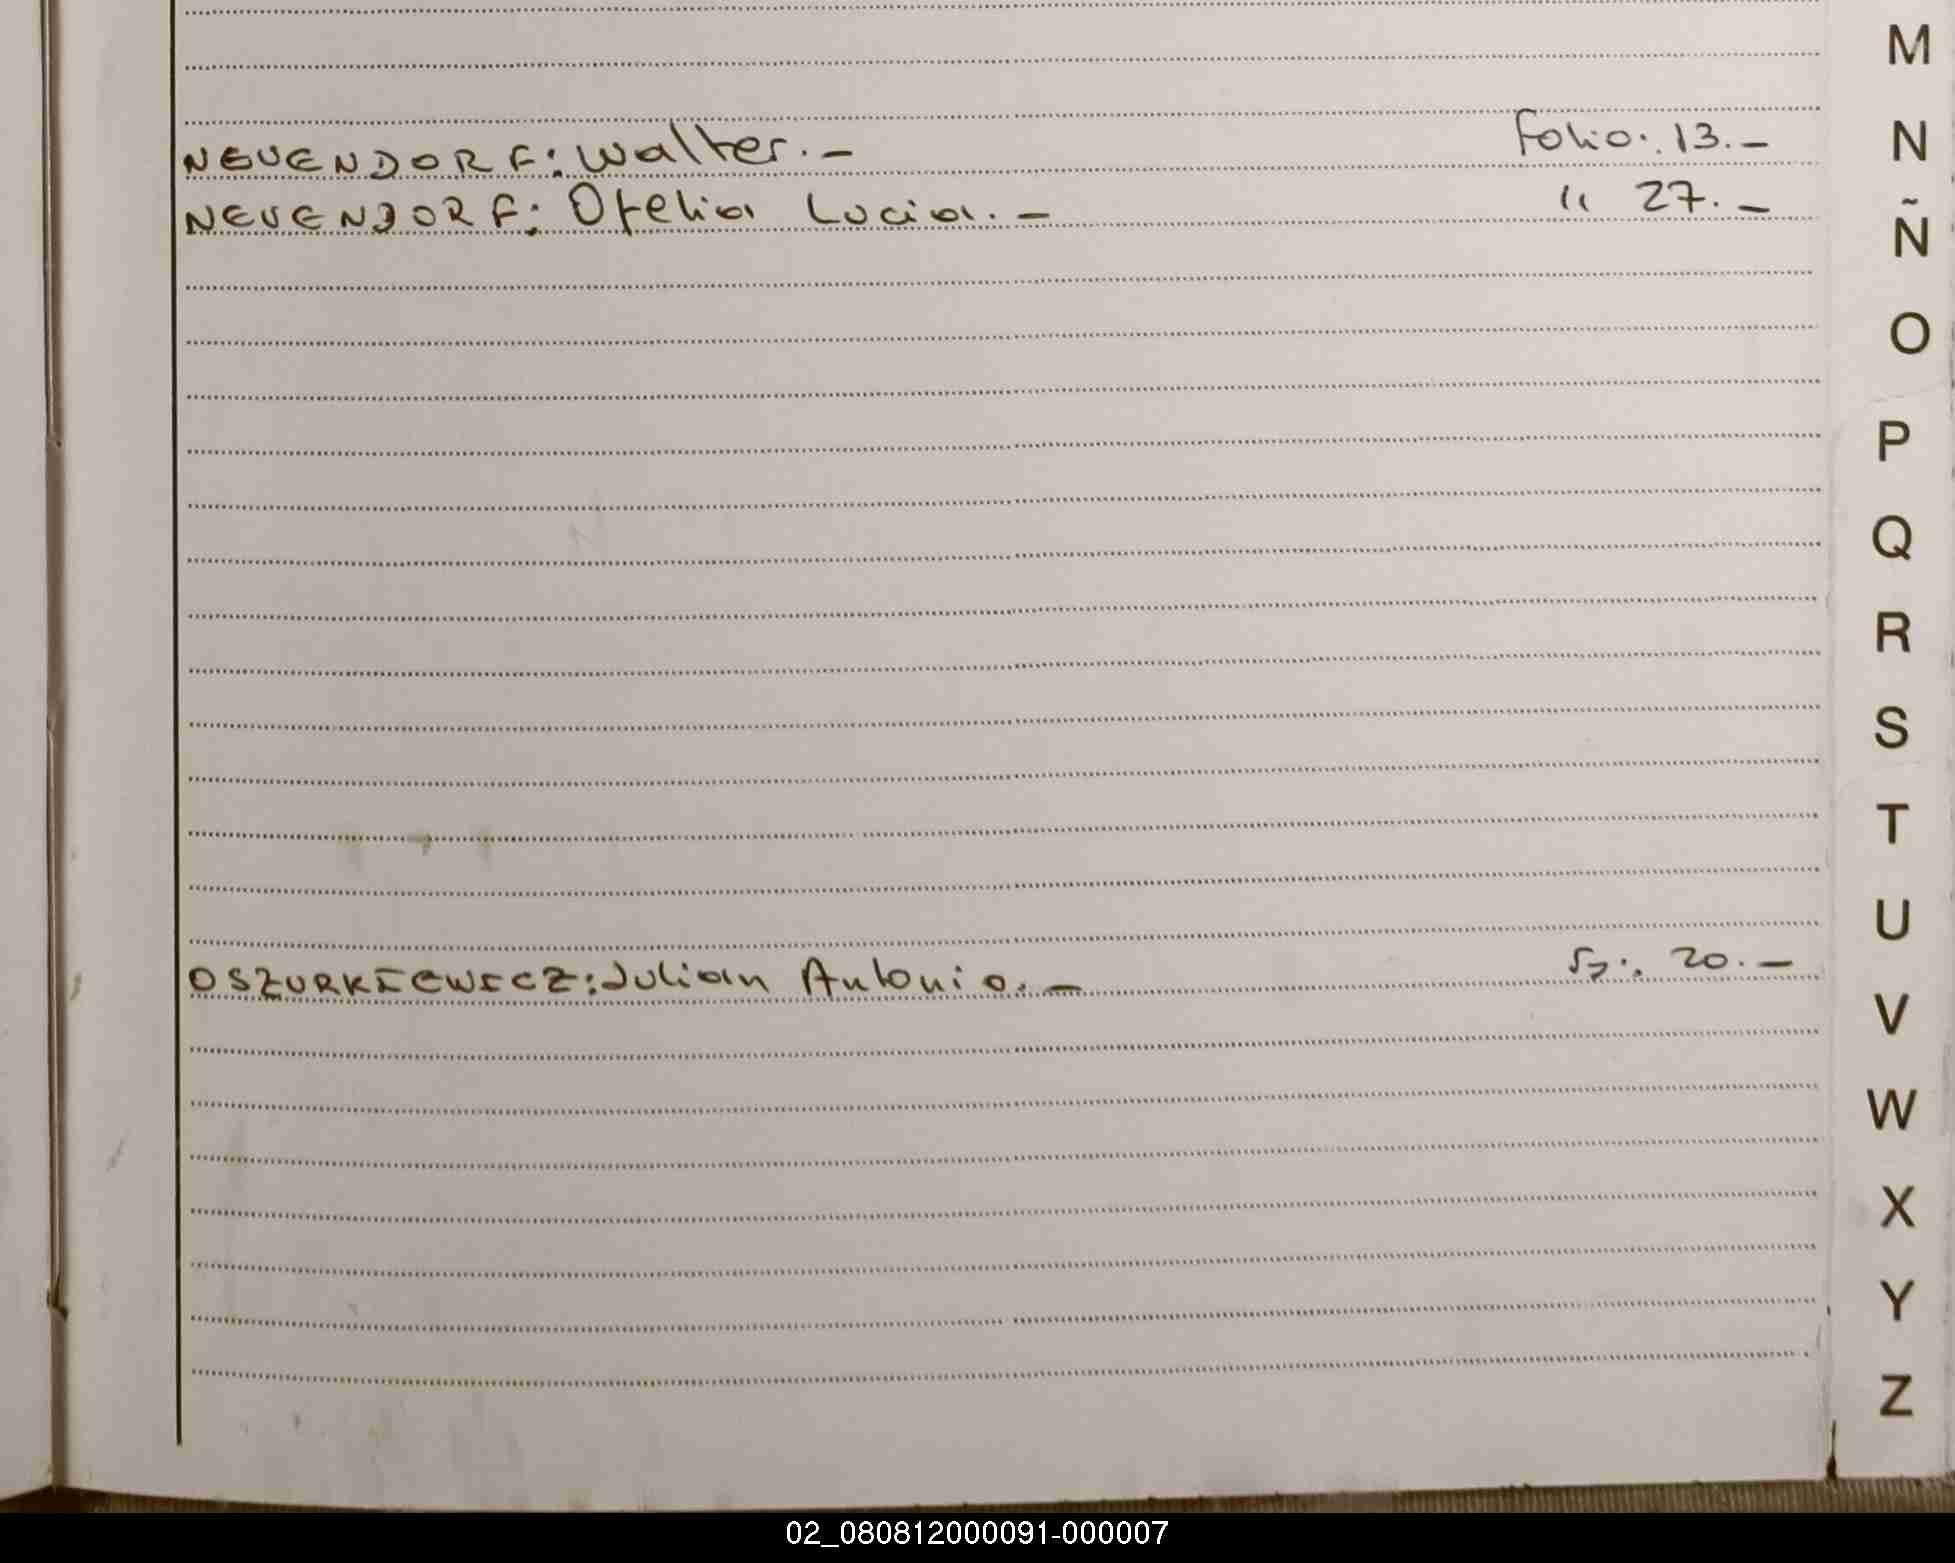 NEUENDORF: Walter. - Folio: 13. -
NEUENDORF: Ofelia Lucia. - " 27. -
OSZURKIEWICZ: Julian Antonio. - 20. -
M
N
Ñ
O
P
Q
R
S
T
U
V
W
X
Y
Z
02_080812000091-000007